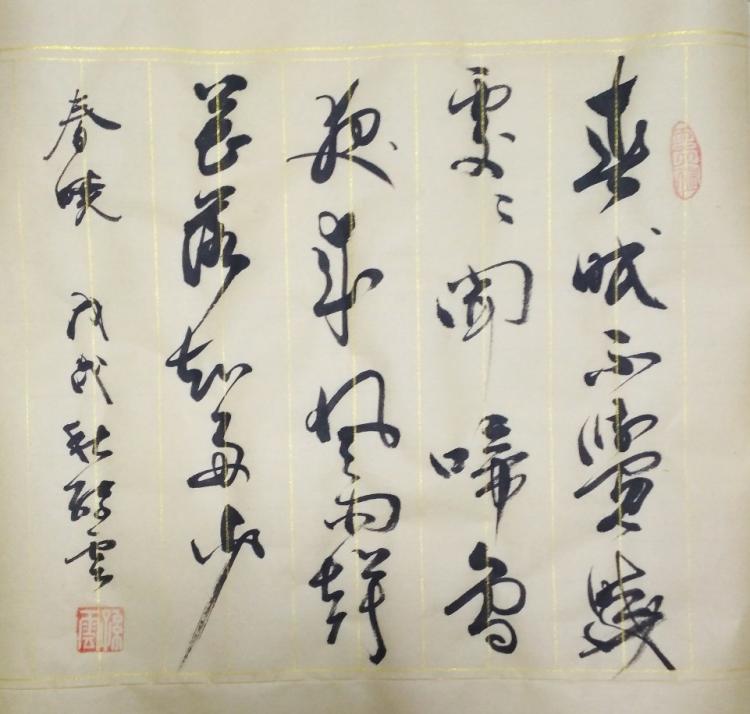 春眠不覺曉
處〻聞啼鳥
夜来風雨聲
花落知多少
春曉 戊戌秋醉雲